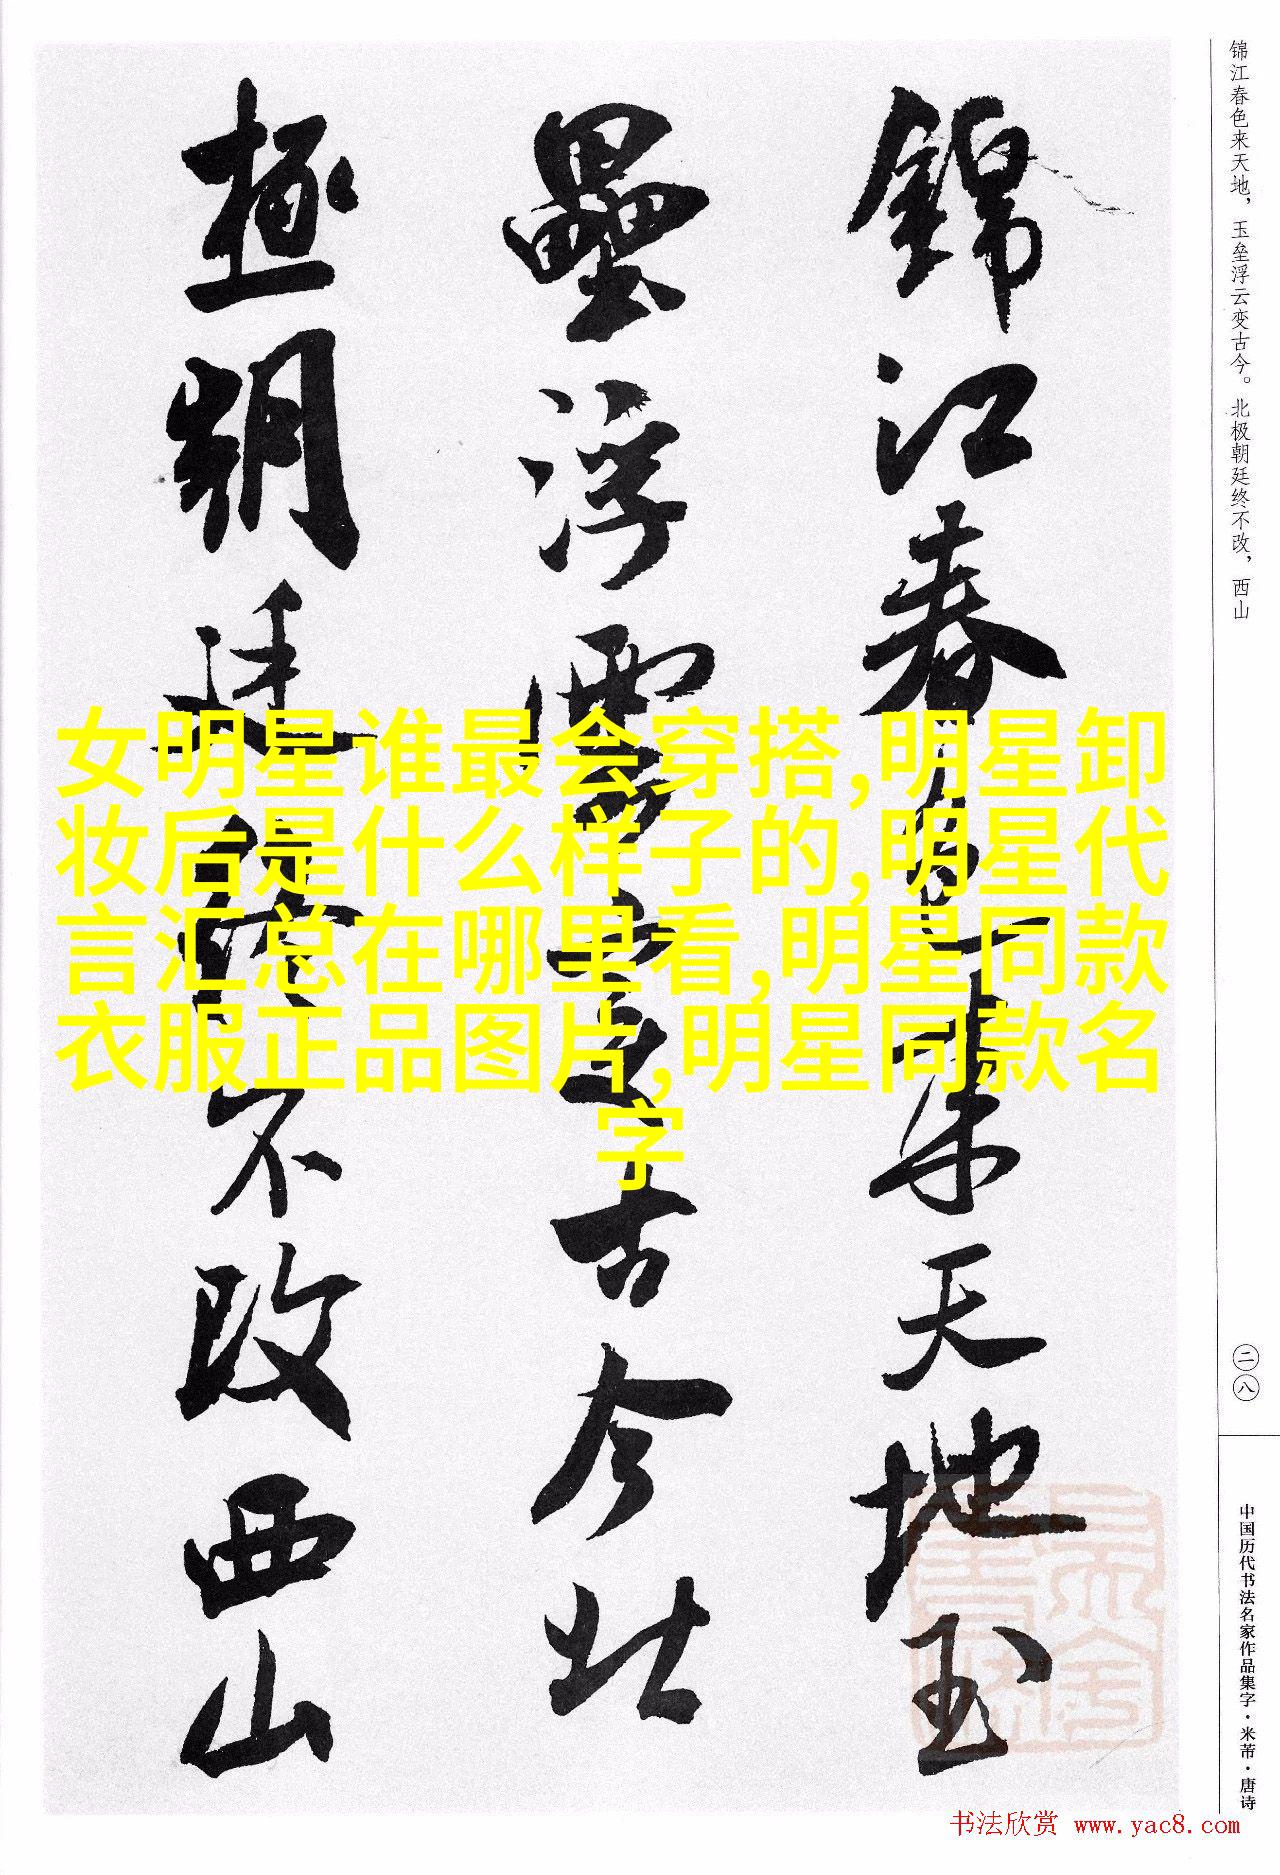 锦江春色来天地，玉垒浮云变古今。北极朝廷终不改，西山
錦江春色来天地玉
壘浮雲变古今北
極朝廷终不改西山
女明星谁最会穿搭,明星卸
妆后是什么样子的,明星代
言汇总在哪里看,明星同款
衣服正品图片,明星同款名
字
二八
中国历代书法名家作品集字·米芾·唐诗
书法欣赏 www.yac8.com